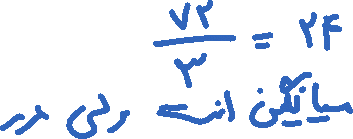 ۷۲/۳ = ۲۴
میانگین است ولی در